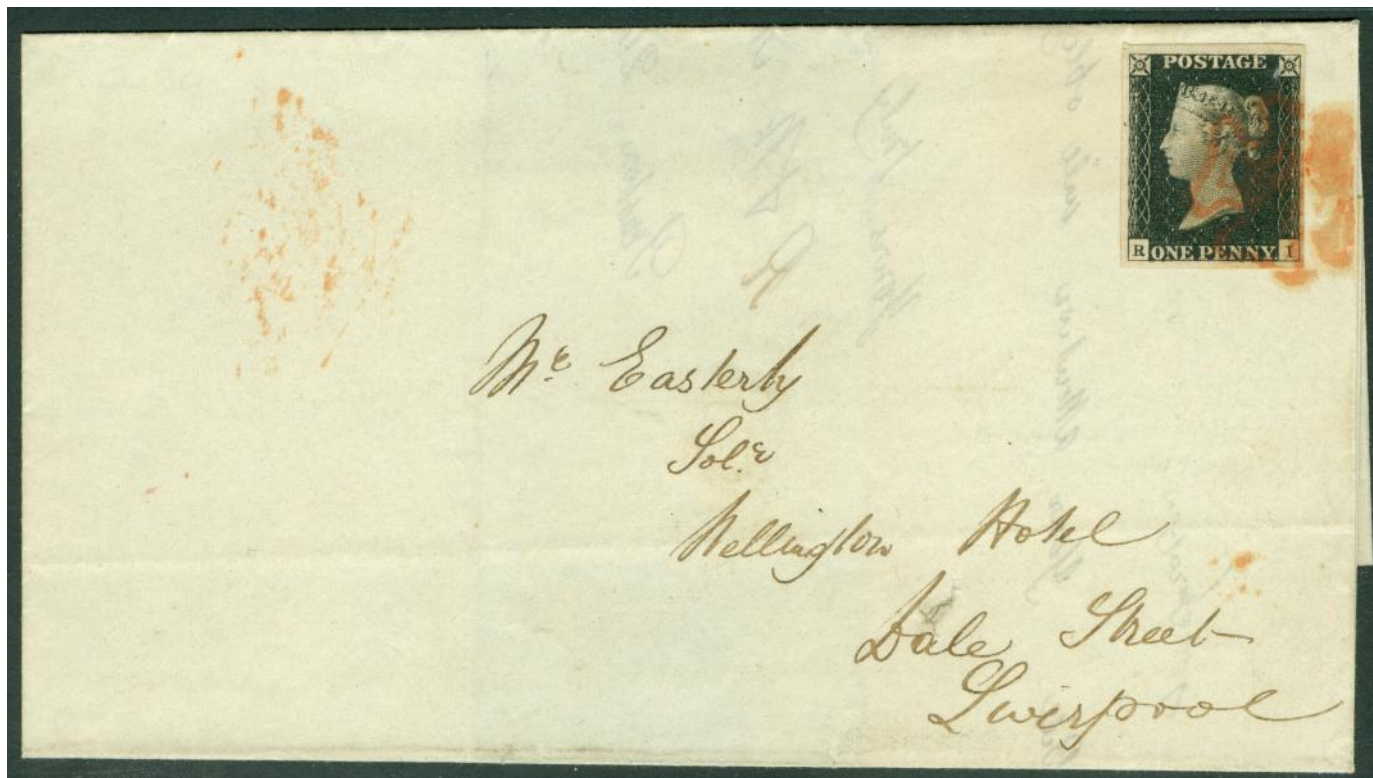 POSTAGE
R ONE PENNY I
Mr. Easterby
Solr
Wellington Hotel
Dale Street
Liverpool